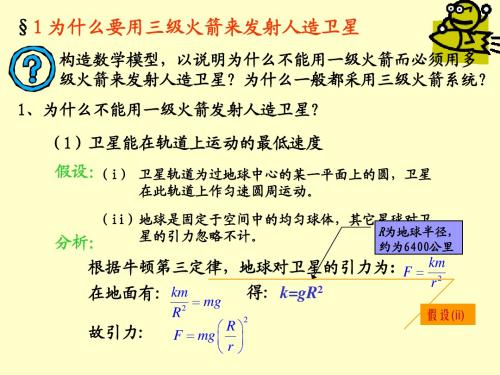 §1为什么要用三级火箭来发射人造卫星
构造数学模型,以说明为什么不能用一级火箭而必须用多
级火箭来发射人造卫星?为什么一般都采用三级火箭系统?
1、为什么不能用一级火箭发射人造卫星?
(1)卫星能在轨道上运动的最低速度
假设:(i) 卫星轨道为过地球中心的某一平面上的圆,卫星
在此轨道上作匀速圆周运动。
(ii)地球是固定于空间中的均匀球体,其它星球对卫
星的引力忽略不计。
R为地球半径,
约为6400公里
分析:
根据牛顿第三定律,地球对卫星的引力为: F = km/r²
在地面有: km/R² = mg 得: k=gR²
假设(ii)
故引力: F = mg(R/r)²